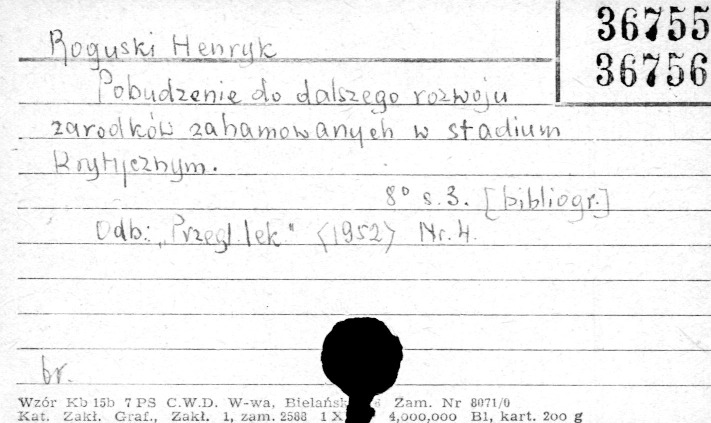 36755
36756
Roguski Henryk
Pobudzenie do dalszego rozwoju
zarodków zahamowanych w stadium
krytycznym.
8° s. 3. [bibliogr.]
Odb.: „Przegl. lek" <1952> Nr. 4.
br.
Wzór Kb 15b 7 PS C.W.D. W-wa, Bielańsk Zam. Nr 8071/0
Kat. Zakł. Graf., Zakł. 1, zam. 2588 1 X 4,000,000 B1, kart. 200 g